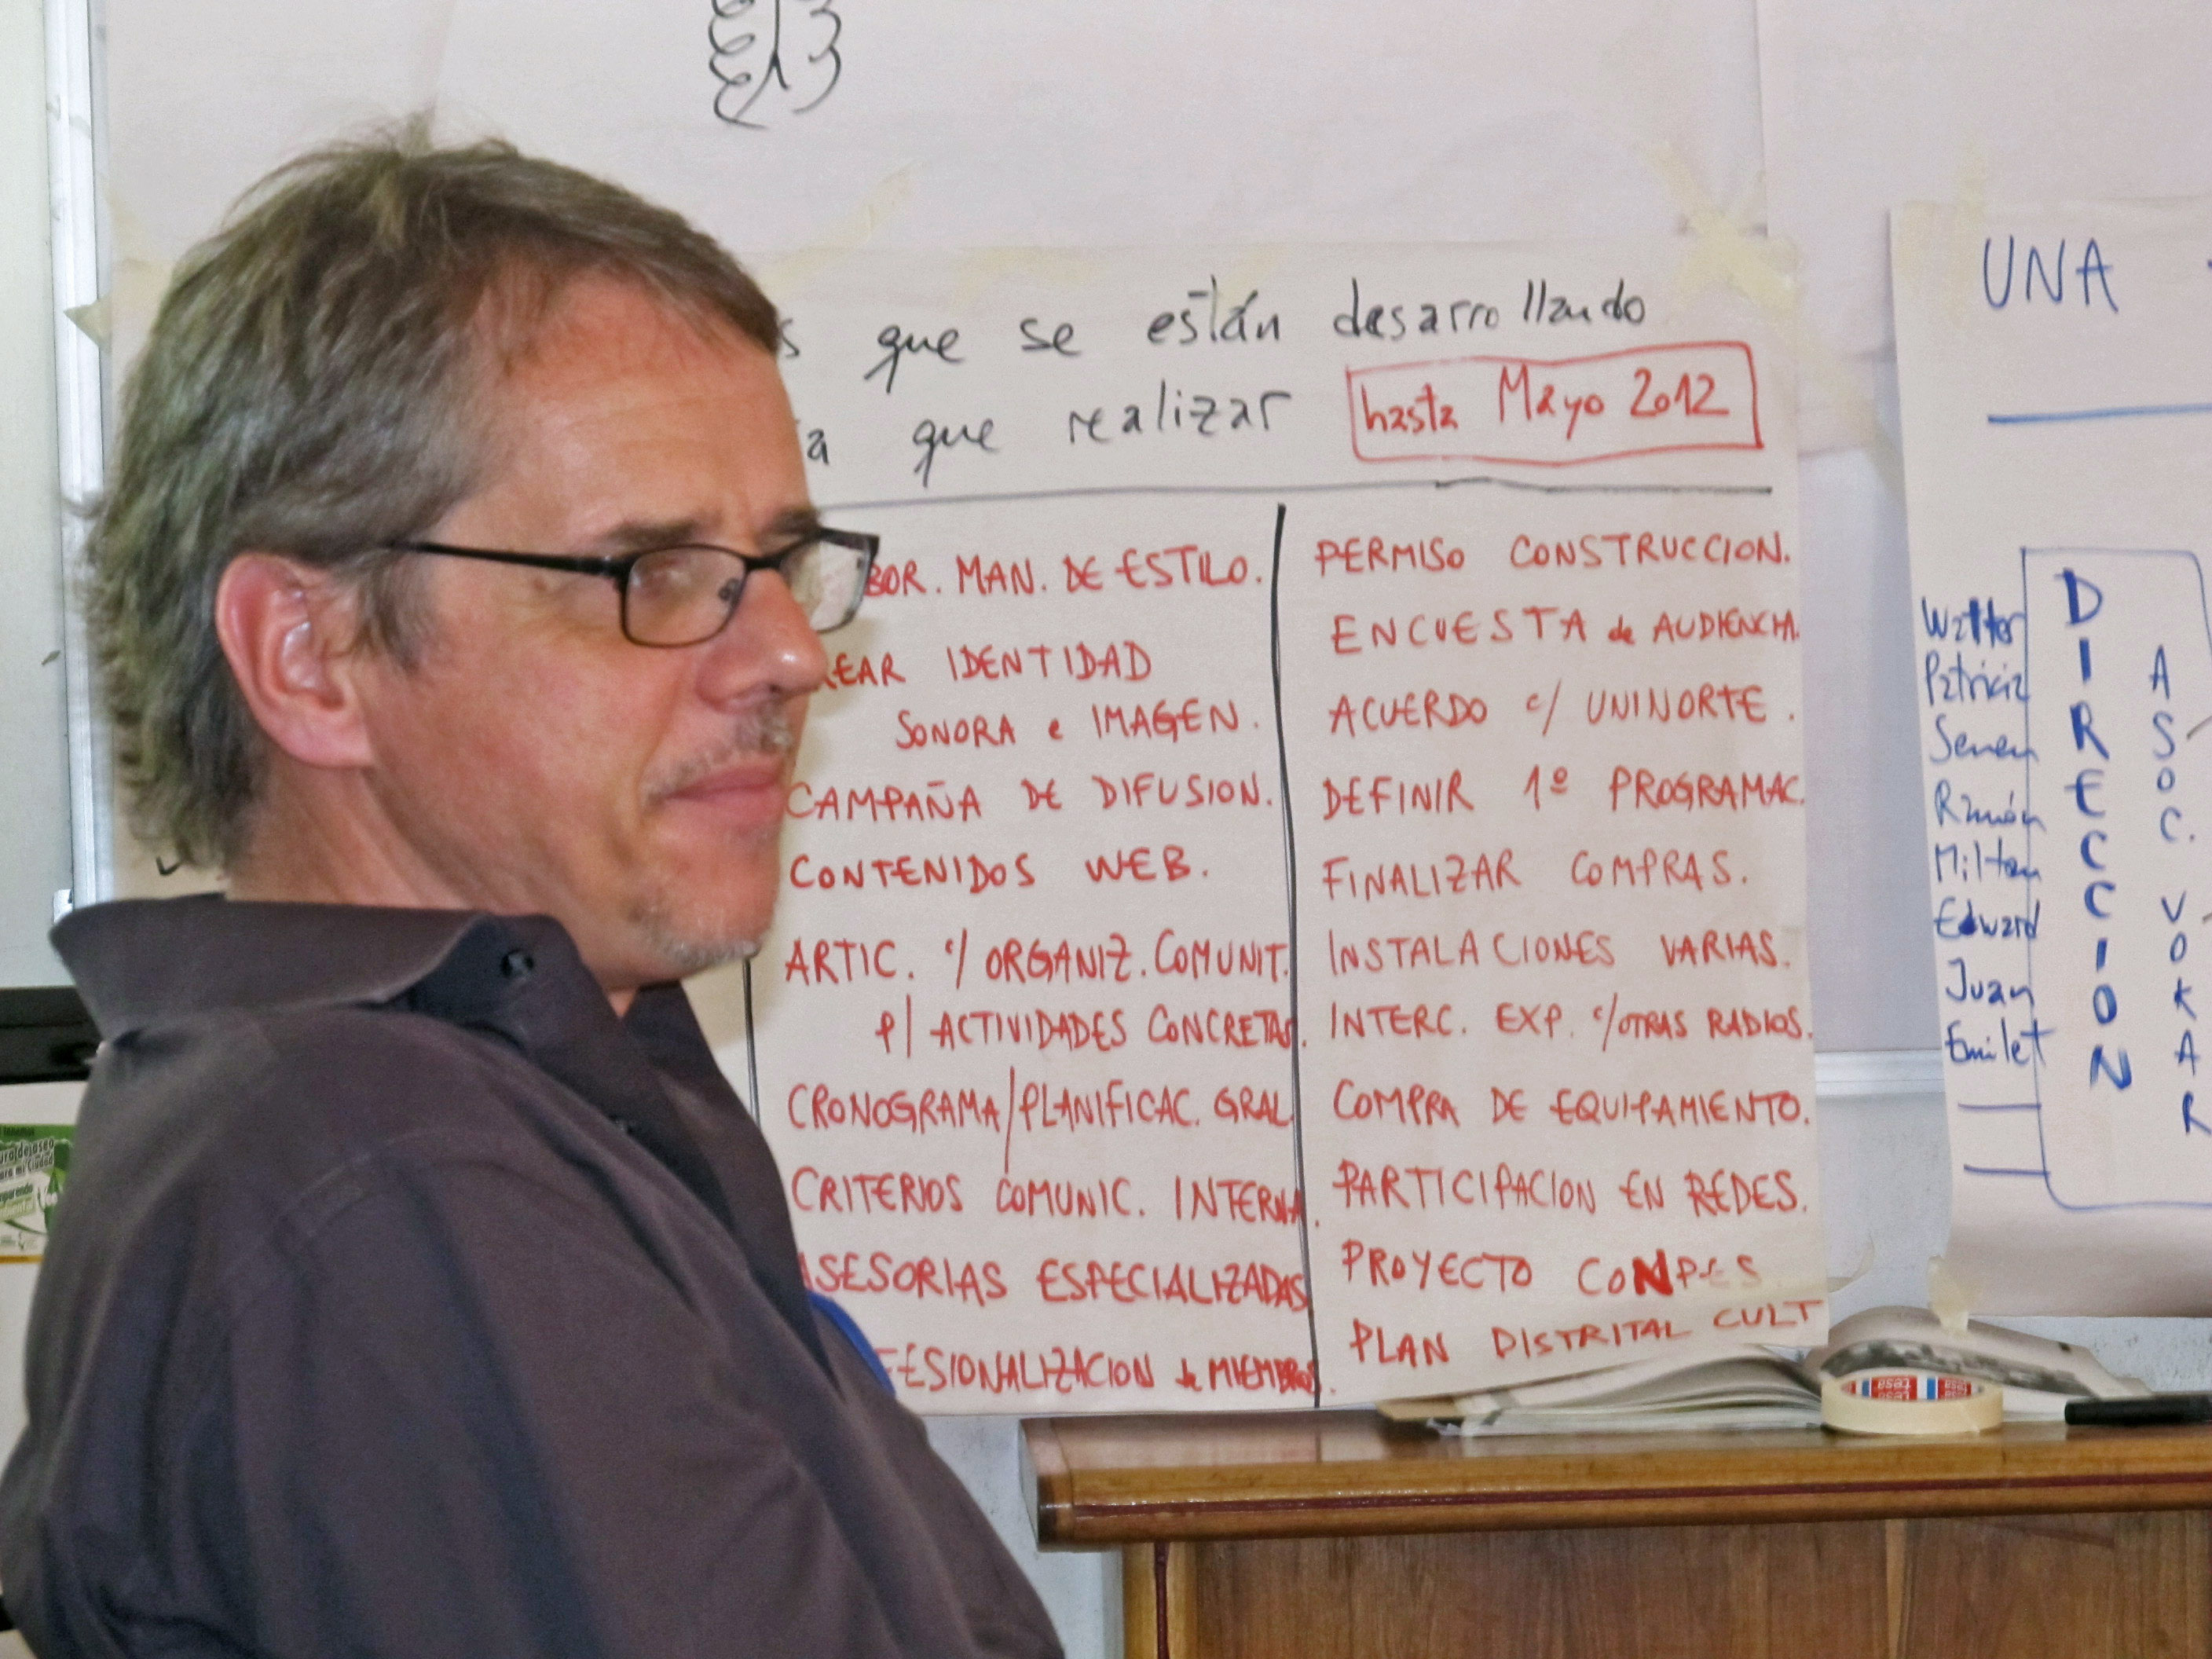 que se están desarrollando
que realizar hasta Mayo 2012
MAN. DE ESTILO.
IDENTIDAD
SONORA e IMAGEN.
CAMPAÑA DE DIFUSION.
CONTENIDOS WEB.
ARTIC. c/ ORGANIZ. COMUNIT.
p/ ACTIVIDADES CONCRETAS.
CRONOGRAMA/PLANIFICAC. GRAL
CRITERIOS COMUNIC. INTERNA.
ASESORIAS ESPECIALIZADAS
FESIONALIZACION de MIEMBROS.
PERMISO CONSTRUCCION.
ENCUESTA de AUDIENCIA.
ACUERDO c/ UNINORTE.
DEFINIR 1º PROGRAMAC.
FINALIZAR COMPRAS.
INSTALACIONES VARIAS.
INTERC. EXP. c/OTRAS RADIOS.
COMPRA DE EQUIPAMIENTO.
PARTICIPACION EN REDES.
PROYECTO CONPES
PLAN DISTRITAL CULT
UNA
Walter
Patricia
Senen
Ramón
Milton
Edward
Juan
Emilet
DIRECCION
ASOC. VOKAR
tesa